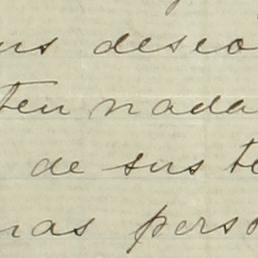 us deseo
ten nada
de sus te
nas perso